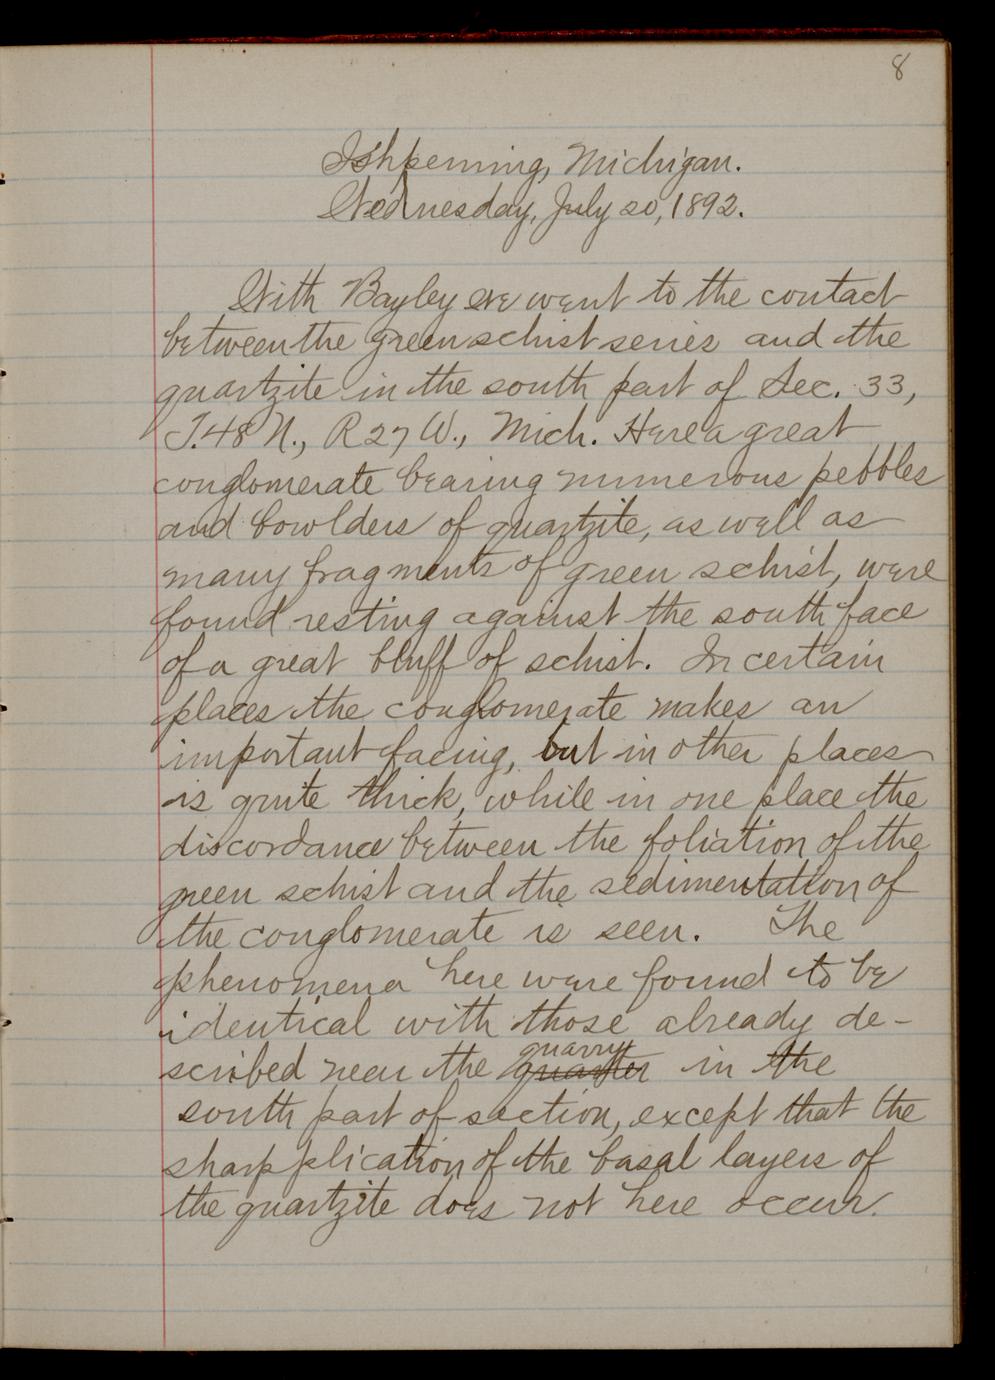 8
Ishpeming, Michigan.
Wednesday, July 20, 1892.
With Bayley we went to the contact
between the green schist series and the
quartzite in the south part of Sec. 33,
T. 48 N., R 27 W., Mich. Here a great
conglomerate bearing numerous pebbles
and bowlders of quartzite, as well as
many fragments of green schist, were
found resting against the south face
of a great bluff of schist. In certain
places the conglomerate makes an
important facing, but in other places
is quite thick, while in one place the
discordance between the foliation of the
green schist and the sedimentation of
the conglomerate is seen. The
phenomena here were found to be
identical with those already de-
quarry
scribed near the quarter in the
south part of section, except that the
sharp plication of the basal layers of
the quartzite does not here occur.